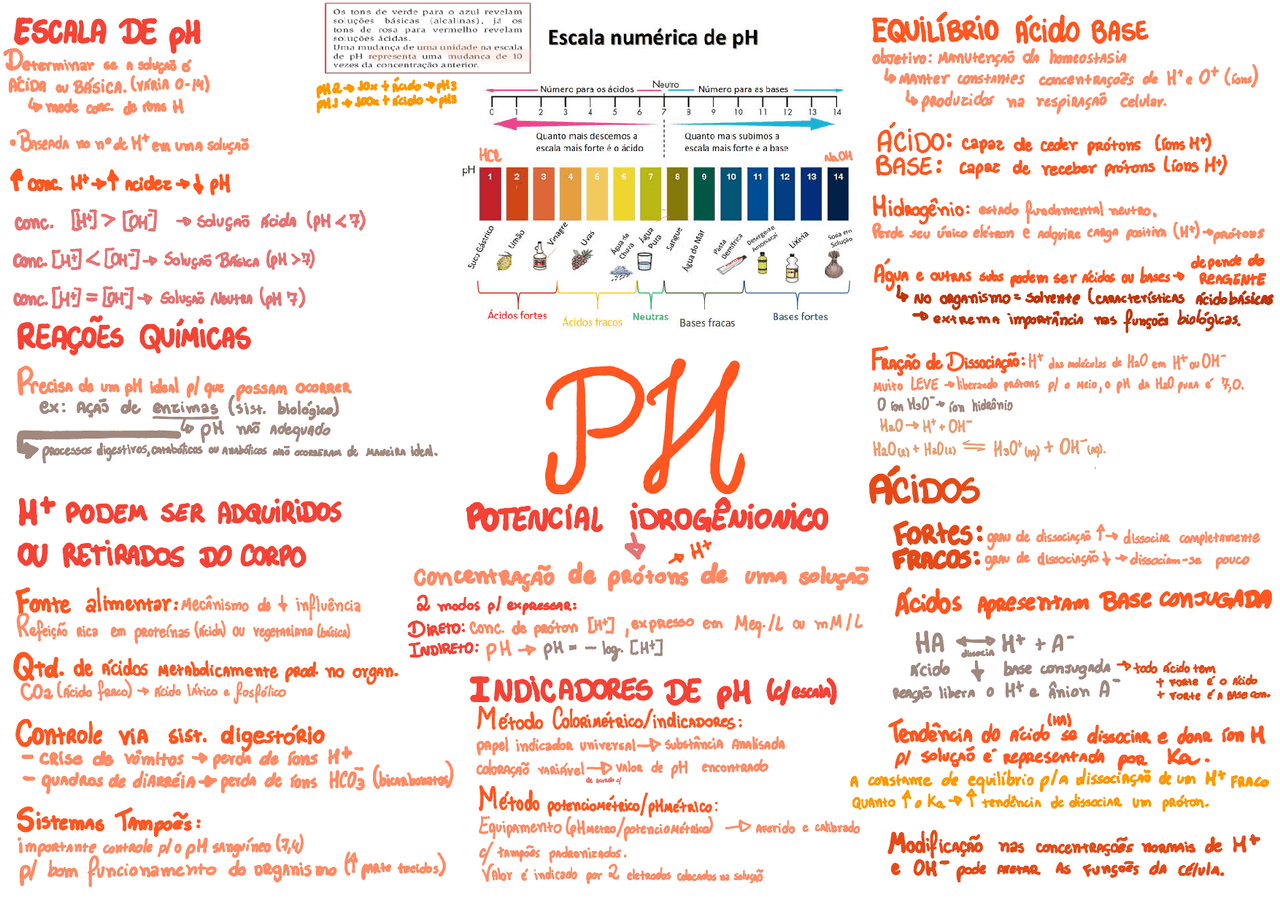 ESCALA DE pH
Determinar se a solução é
ÁCIDA ou BÁSICA. (VÁRIA 0-14)
↳ mede conc. de íons H
• Baseada no nº de H⁺ em uma solução
↑ conc. H⁺→↑ Acidez → ↓ pH
conc. [H⁺] > [OH⁻] → Solução Ácida (pH < 7)
conc. [H⁺] < [OH⁻] → Solução Básica (pH > 7)
conc. [H⁺] = [OH⁻] → Solução Neutra (pH 7)
REAÇÕES QUÍMICAS
Precisa de um pH ideal p/ que possam ocorrer
ex: Ação de enzimas (sist. biológico)
↳ pH não adequado
processos digestivos, catabólicos ou anabólicos não ocorreram de maneira ideal.
H⁺ PODEM SER ADQUIRIDOS
OU RETIRADOS DO CORPO
Fonte alimentar: Mecânismo de ↓ influência
Refeição rica em proteínas (ácida) ou vegetariana (básica)
Qtd. de Ácidos metabolicamente prod. no organ.
CO₂ (Ácido fraco) → Ácido lático e fosfólico
Controle via sist. digestório
- crise de vômitos → perda de íons H⁺
- quadros de diarréia → perda de íons HCO₃⁻ (bicarbonatos)
Sistemas Tampões:
importante controle p/ o pH sanguíneo (7,4)
p/ bom funcionamento do organismo (↑ parte tecidos)
Os tons de verde para o azul revelam
soluções básicas (alcalinas), já os
tons de rosa para vermelho revelam
soluções ácidas.
Uma mudança de uma unidade na escala
de pH representa uma mudança de 10
vezes da concentração anterior.
pH 2 → 10x + ácido → pH3
pH 1 → 100x + ácido → pH3
Escala numérica de pH
Neutro
Número para os ácidos Número para as bases
0 1 2 3 4 5 6 7 8 9 10 11 12 13 14
Quanto mais descemos a
escala mais forte é o ácido
Quanto mais subimos a
escala mais forte é a base
HCl NaOH
pH 1 2 3 4 5 6 6 7 8 9 10 11 12 13 14
Suco Gástrico Limão Vinagre Uvas Água da Chuva Água Pura Sangue Água do Mar Pasta Dentífrica Detergente Amoniacal Lixívia Soda em Solução
Ácidos fortes Ácidos fracos Neutras Bases fracas Bases fortes
PH
POTENCIAL IDROGÊNIONICO
→ H⁺
Concentração de prótons de uma solução
2 modos p/ expressar:
Direto: conc. de próton [H⁺], expresso em Meq./L ou mM/L
Indireto: pH → pH = - log. [H⁺]
INDICADORES DE pH (c/ escala)
Método Colorimétrico/indicadores:
papel indicador universal → Substância Analisada
coloração variável → valor de pH encontrado
de acordo c/
Método potenciométrico/pHmétrico:
Equipamento (pHmetro/potenciométrico) → Aferido e calibrado
c/ tampões padronizados.
Valor é indicado por 2 eletrodos colocados na solução
EQUILÍBRIO ÁCIDO BASE
objetivo: manutenção da homeostasia
↳ Manter constantes concentrações de H⁺ e O⁺ (íons)
↳ produzidos na respiração celular.
ÁCIDO: capaz de ceder prótons (íons H⁺)
BASE: capaz de receber prótons (íons H⁺)
Hidrogênio: estado fundamental neutro.
Perde seu único elétron e adquire carga positiva (H⁺) → prótons
Água e outras subs podem ser ácidos ou bases → depende do REAGENTE
↳ no organismo = solvente (características ácidobásicas
→ extrema importância nas funções biológicas.
Fração de Dissociação: H⁺ das moléculas de H₂O em H⁺ ou OH⁻
Muito LEVE → liberando prótons p/ o meio, o pH da H₂O pura é 7,0.
O íon H₃O⁻ → íon hidrônio
H₂O → H⁺ + OH⁻
H₂O(l) + H₂O(l) ⇌ H₃O⁺(aq) + OH⁻(aq).
ÁCIDOS
FORTES: grau de dissociação ↑ → dissociar completamente
FRACOS: grau de dissociação ↓ → dissociam-se pouco
Ácidos apresentam BASE CONJUGADA
HA ⟷ H⁺ + A⁻
dissocia
ácido ↓ base conjugada → todo ácido tem
+ forte é o ácido
+ forte é a base con.
Reação libera o H⁺ e Ânion A⁻
Tendência do ácido (HA) se dissociar e doar íon H
p/ solução é representada por Ka.
A constante de equilíbrio p/ a dissociação de um H⁺ fraco
Quanto ↑ o Ka → ↑ tendência de dissociar um próton.
Modificação nas concentrações normais de H⁺
e OH⁻ pode afetar as funções da célula.